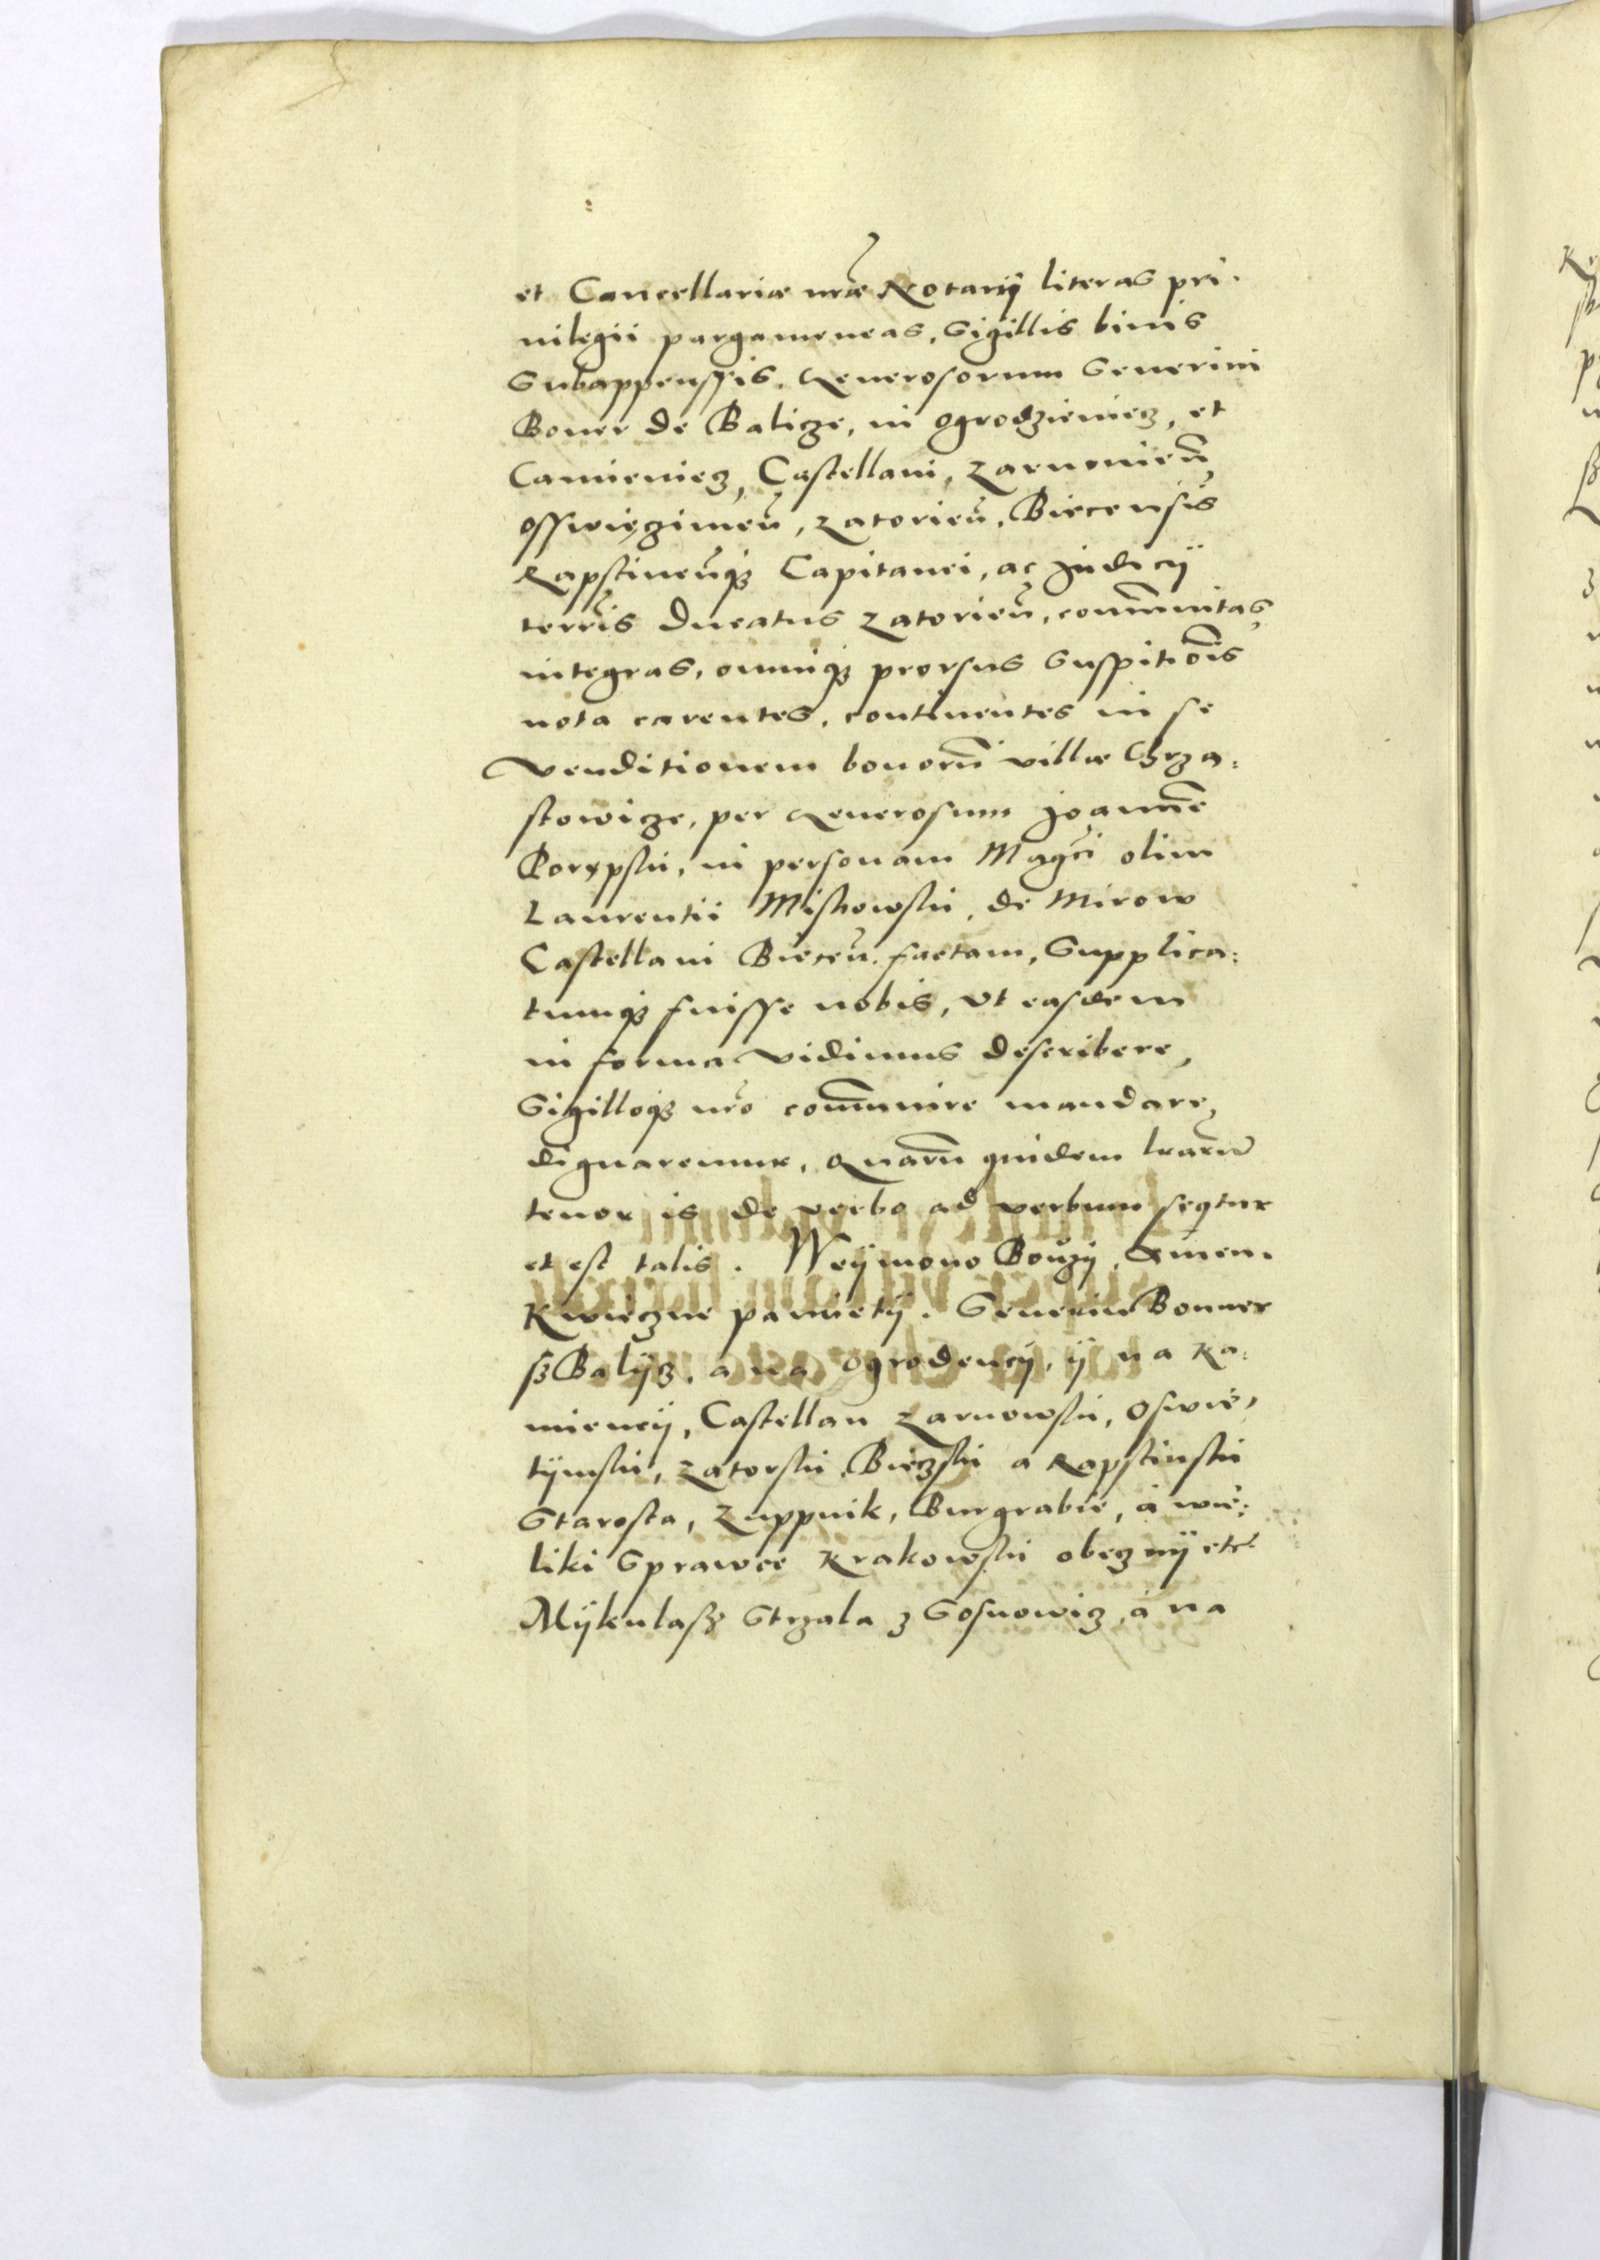 et Cancellariæ nræ Notarij literas pri-
uilegii pargameneas, Sigillis binis
Subappenssis, Generosorum Seuerini
Boner de Balicze, in Ogrodzieniecz, et
Camieniecz, Castellani, Zarnouien̄,
Osswięczimen̄, Zatorien̄, Biecensis
Rapstinen̄q₃ Capitanei, ac Judicij
terrīs Ducatus Zatorien̄, com̄unitas,
integras, omniq₃ prorsus Suspitiōis
nota carentes, continentes in se
Venditionem bonorū villæ Chrza:
stowicze, per Generosum Joannē
Porępski, in personam Magci olim
Laurentii Mistowski, de Mirow
Castellani Biecen̄. factam, Supplica:
tumq₃ fuisse nobis, vt easdem
in forma Vidimus describere,
Sigilloq₃ nr̄o com̄unire mandare,
dignaremur. Quarū quidem lrarū
tenor is de verbo ad verbum seqtur
et est talis. We ijmono Bozij, Amen.
K wieczne pamietij. Seuerin Bonner
sz Balijcz, a na Ogrodencij, ij na Ka:
miencij, Castellan Zarnowski, Oswie,
tijmski, Zatorski, Bieczski a Rapstinski
Starosta, Zuppnik, Burgrabie, à wie:
liki Sprawce Krakowski obecznij etc
Mijkulass Strzala z Sosnowicz, à na